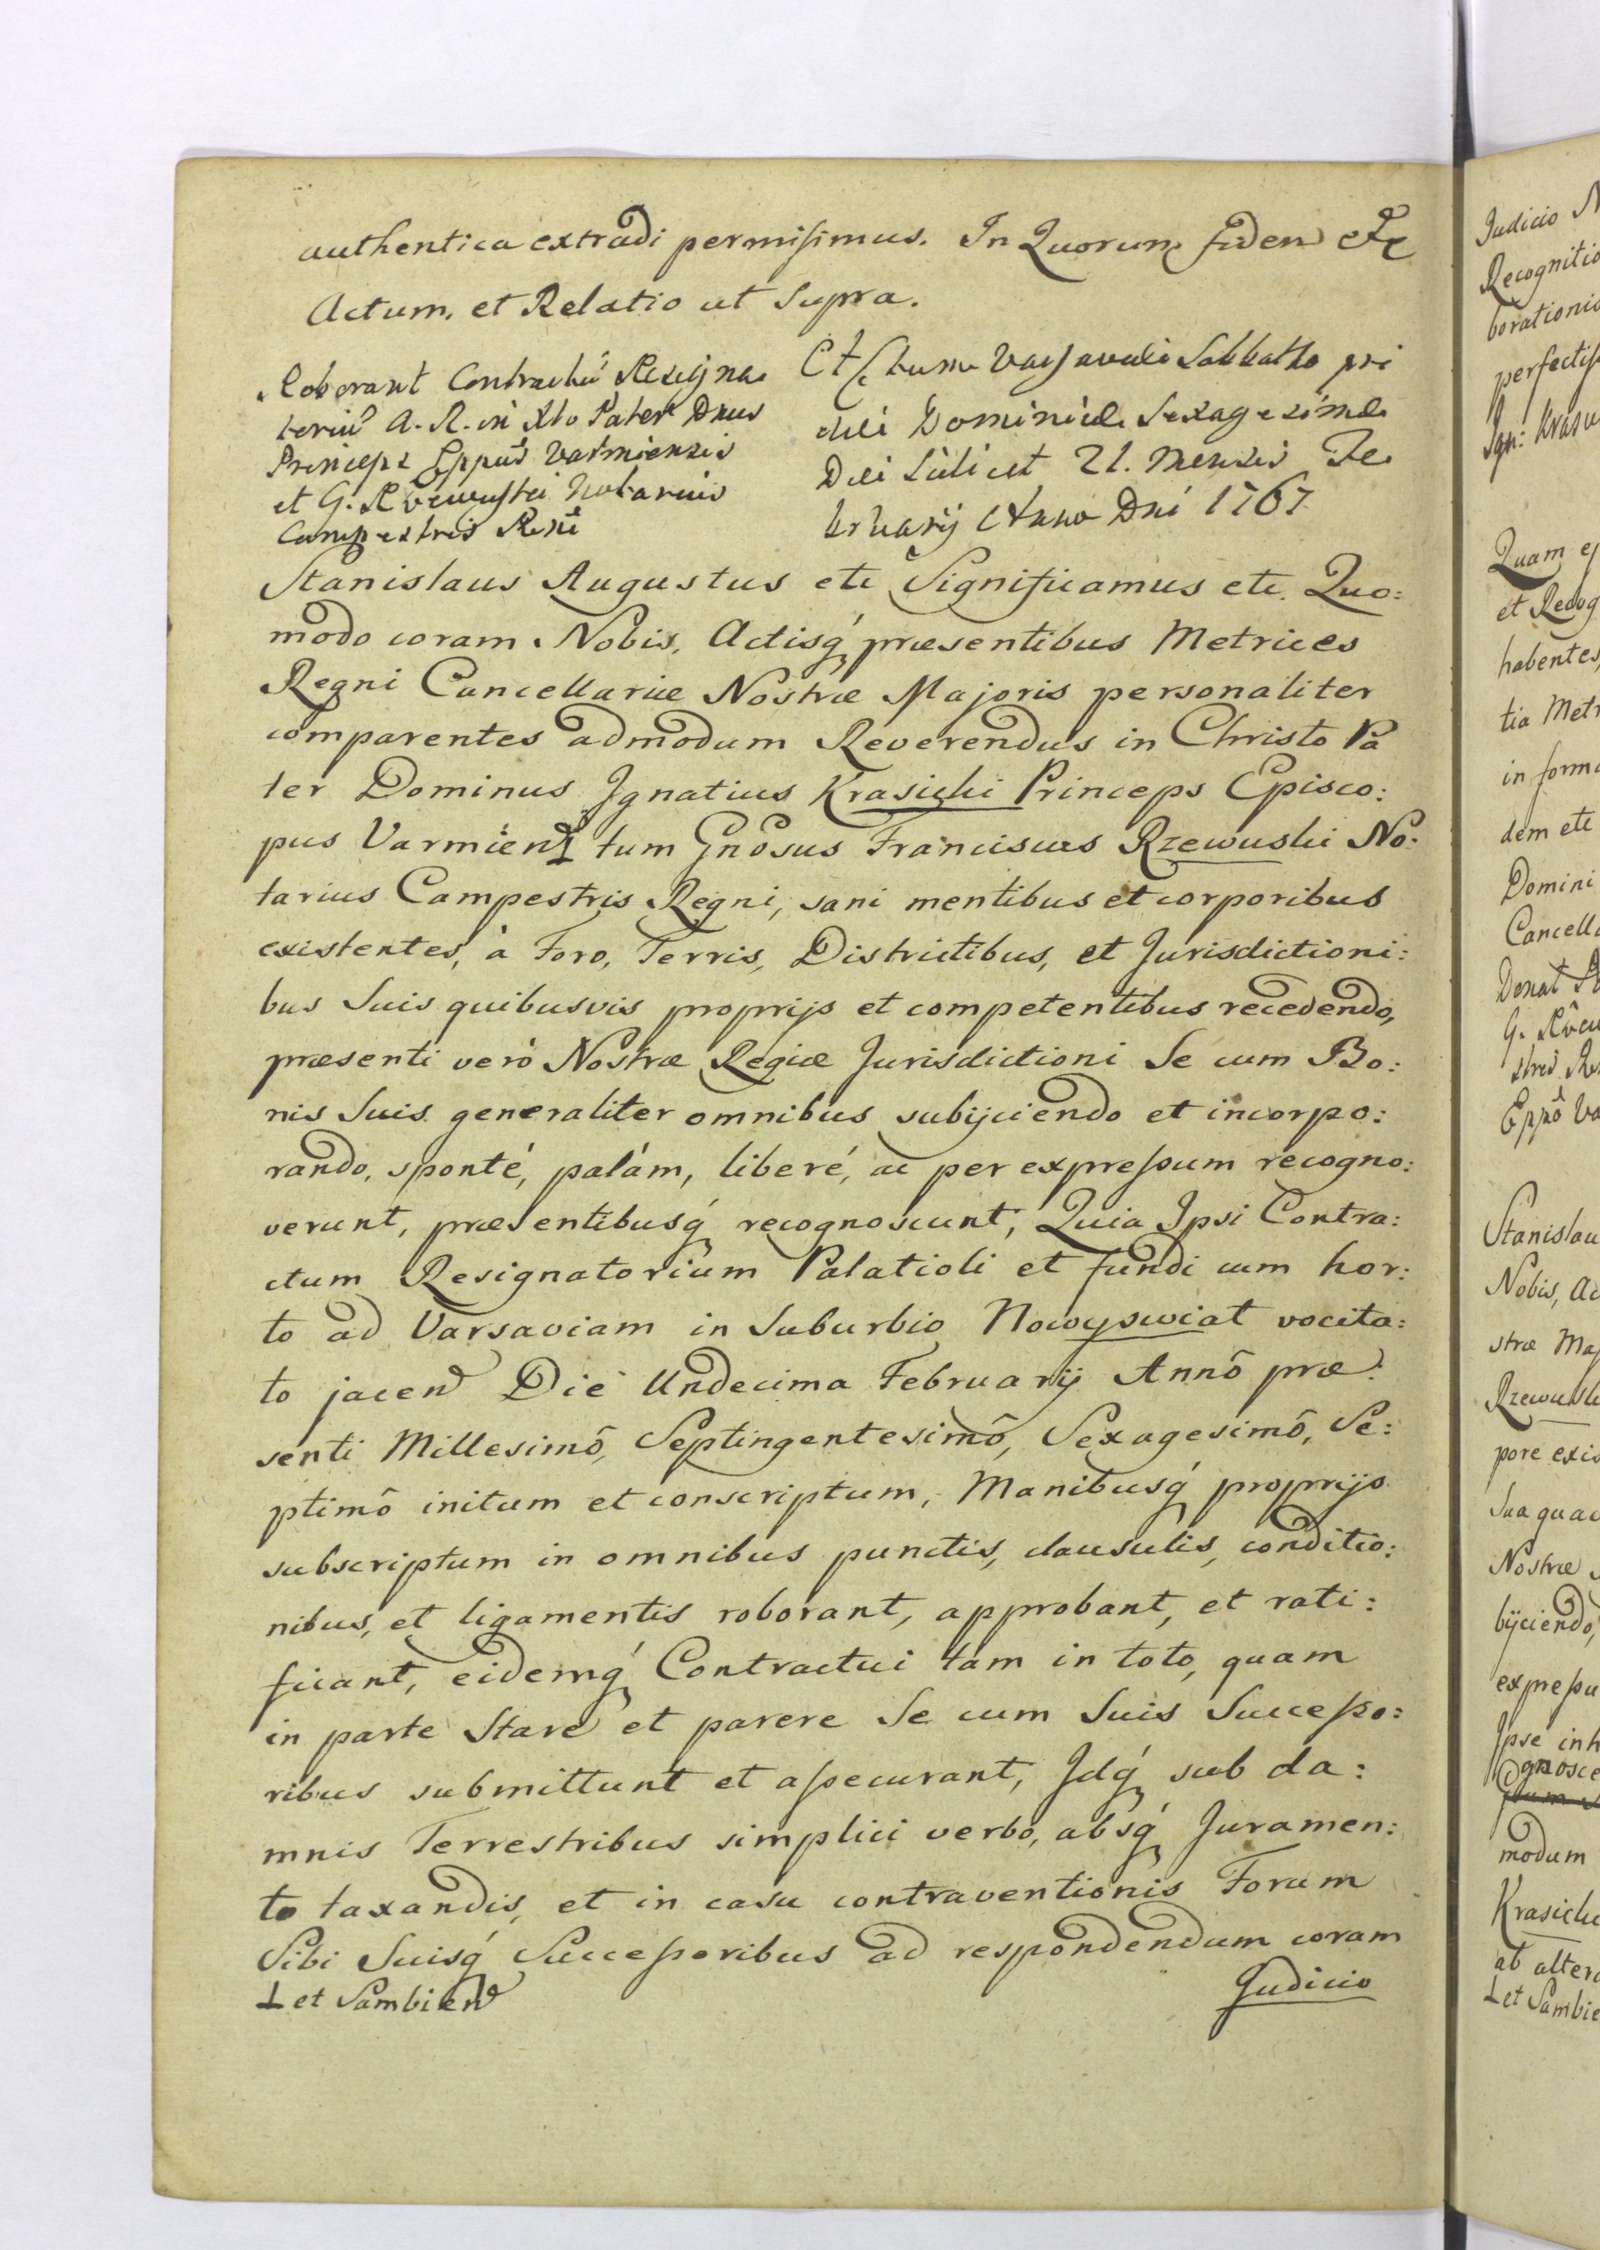 authentica extradi permisimus. In Quorum fidem etc
Actum, et Relatio ut Supra.
Roborant Contractũ Resigna
toriũ A. R. in Xto Pater Dnus
Princeps Eppus Varmiensis
et G. Rzewuski Notarius
Campestris Regni
Actum Varsaviæ Sabbatho pri
die Dominicæ Sexagesimæ
Diei Scilicet 21. Mensis Fe
bruarij Anno Dni 1767
Stanislaus Augustus etc Significamus etc. Quo:
modo coram Nobis, Actisq́ præsentibus Metrices
Regni Cancellariæ Nostræ Majoris personaliter
comparentes admodum Reverendus in Christo Pa
ter Dominus Ignatius Krasicki Princeps Episco:
pus Varmien ⊥ tum Gnosus Franciscus Rzewuski No:
tarius Campestris Regni, sani mentibus et corporibus
existentes, à Foro, Terris, Districtibus, et Jurisdictioni:
bus Suis quibusvis proprijs et competentibus recedendo,
præsenti verò Nostræ Regiæ Jurisdictioni Se cum Bo:
nis Suis generaliter omnibus subijciendo et incorpo:
rando, sponté, palám, liberé, ac per expressum recogno:
verunt, præsentibusq́ recognoscunt; Quia Ipsi Contra:
ctum Resignatorium Palatioli et fundi cum hor:
to ad Varsaviam in Suburbio Nowyswiat vocita:
to jacen Die Undecima Februarij Annô præ:
senti Millesimô, Septingentesimô, Sexagesimô, Se:
ptimô initum et conscriptum, Manibusq́ proprijs
subscriptum in omnibus punctis, clausulis, conditio:
nibus, et ligamentis roborant, approbant, et rati:
ficant, eidemq́ Contractui tam in toto, quam
in parte Stare et parere Se cum Suis Successo:
ribus submittunt et assecurant, Idq́ sub da:
mnis Terrestribus simplici verbo, absq́ Juramen:
to taxandis, et in casu contraventionis Forum
Sibi Suisq́ Successoribus ad respondendum coram
⊥ et Sambien
Judicio
Judicio
Recognitio
borationis
Quam
et Recog
habentes,
tia Metr
in forma
dem etc
Domini
Cancella
Stanislau
Nobis, Ac
stræ Maj
Rzewuski
pore exis
Sua quac
Nostræ
bijciendo,
expressu
Ipse inh
modum
Krasicki
ab altera
⊥ et Sambie